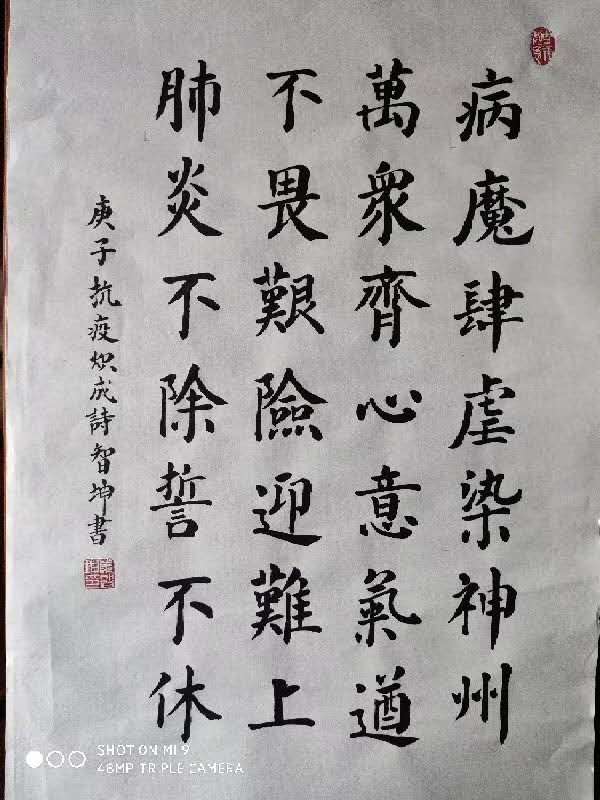 病魔肆虐染神州
萬衆齊心意氣遒
不畏艱險迎難上
肺炎不除誓不休
庚子抗疫炽成詩智坤書
SHOT ON MI 9
48MP TRIPLE CAMERA